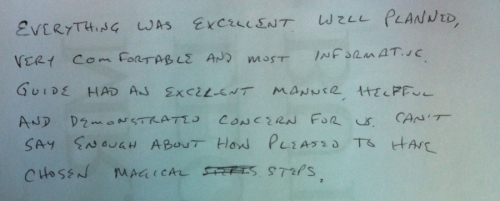 EVERYTHING WAS EXCELLENT. WELL PLANNED,
VERY COMFORTABLE AND MOST INFORMATIVE.
GUIDE HAD AN EXCELLENT MANNER, HELPFUL
AND DEMONSTRATED CONCERN FOR US. CAN'T
SAY ENOUGH ABOUT HOW PLEASED TO HAVE
CHOSEN MAGICAL STEPS.